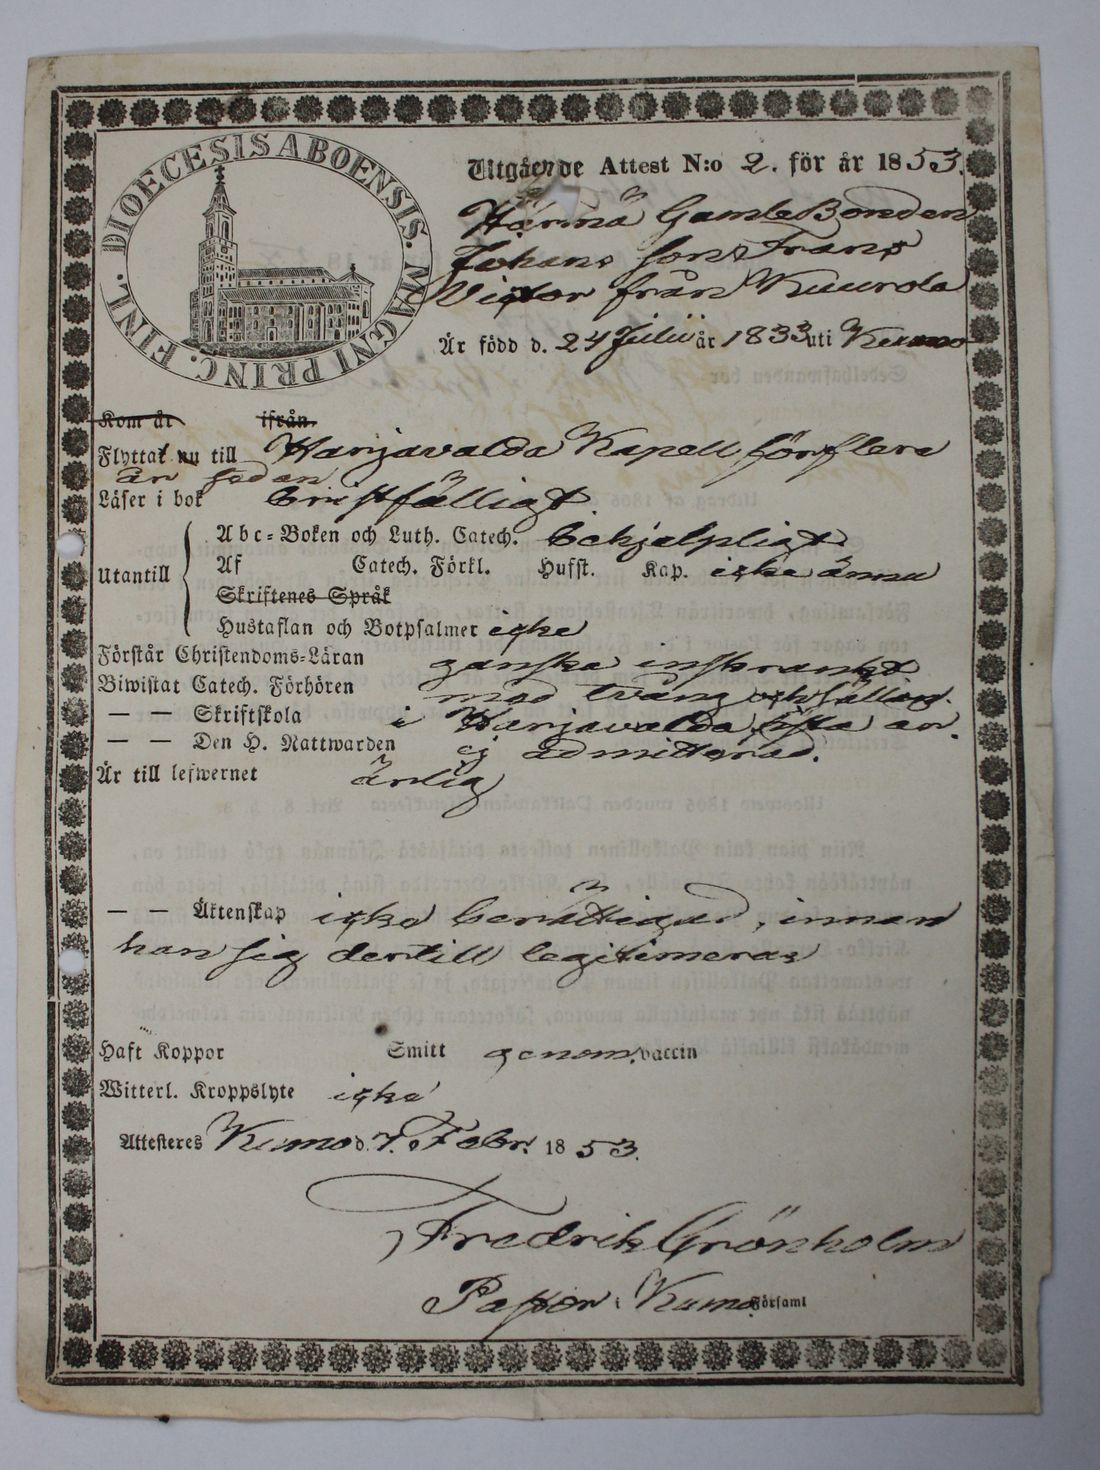 DIOECESIS ABOENSIS. MAGNI PRINC. FINL.
Utgående Attest N:o 2. för år 1853.
GamleBonden
Johans son Frans
Victor från Kuurola
Är född d. 24 Julii år 1833 uti Kumo
Kom år ifrån
Flyttat nu till Harjavalda Kapell för flere
år sedan
Läser i bok bristfälligt.
Utantill
Abc-Boken och Luth. Catech. behjelpligt
Af Catech. Förkl. Hufst. Kap. icke ännu
Skriftenes Språk
Hustaflan och Botpsalmer icke
Förstår Christendoms-Läran ganska inskränkt
Biwistat Catech. Förhören med tvång och sällan.
— — Skriftskola i Harjavalda sista år.
— — Den H. Nattwarden ej admitterad.
Är till lefwernet ärlig
— — Äktenskap icke berättigad, innan
han sig dertill legitimerar
Haft Koppor Smitt genom vaccin
Witterl. Kroppslyte icke
Attesteres Kumo d. 7. Febr. 1853.
Fredrik Grönholm
Pastor i Kumo Församl